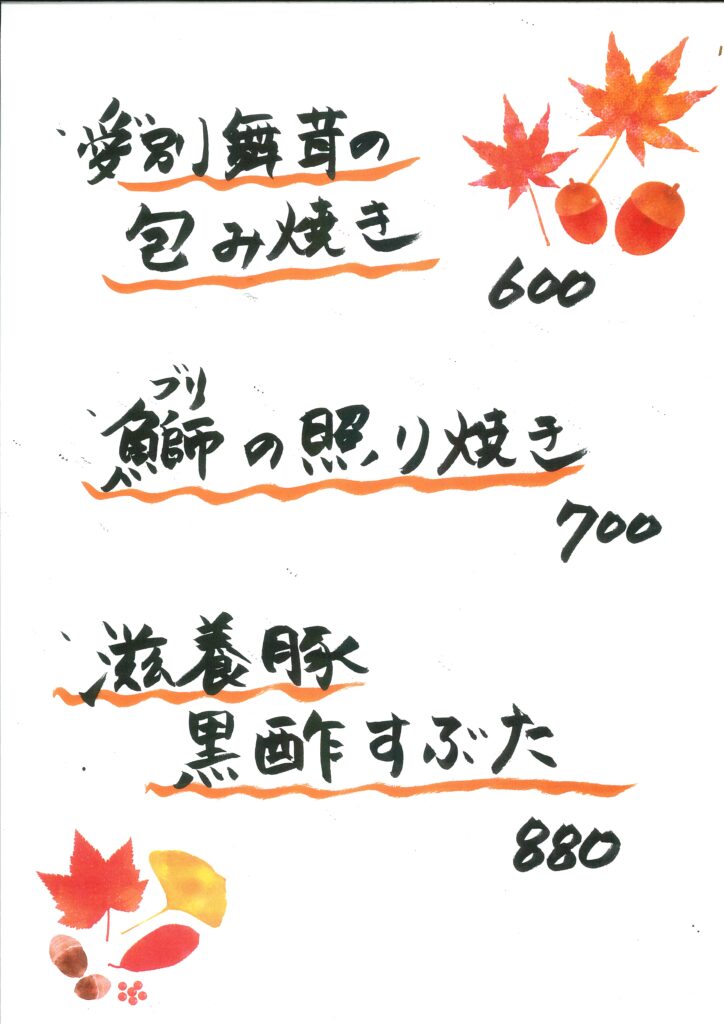 愛別舞茸の
包み焼き
600
ブリ
鰤の照り焼き
700
滋養豚
黒酢すぶた
880